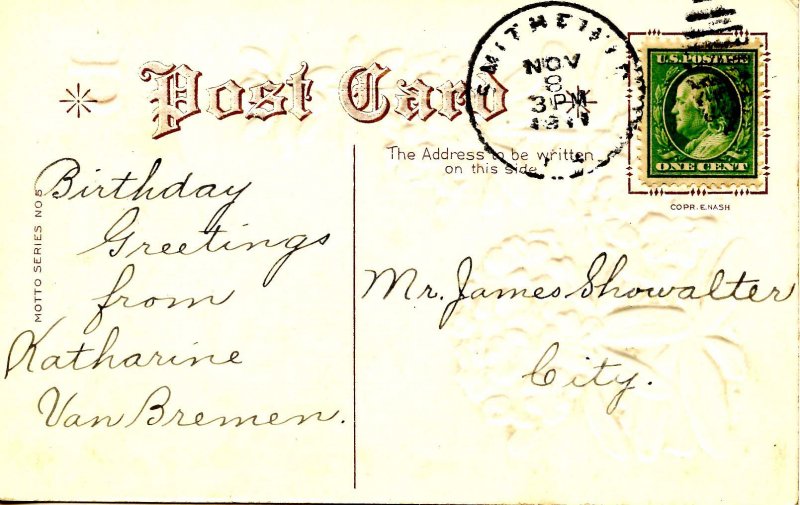 Post Card
NOV
8
3 PM
1911
U.S. POSTAGE
ONE CENT
The Address to be written
on this side
COPR. E. NASH
MOTTO SERIES NO 5
Birthday
Greetings
from
Katharine
Van Bremen.
Mr. James Showalter
City.